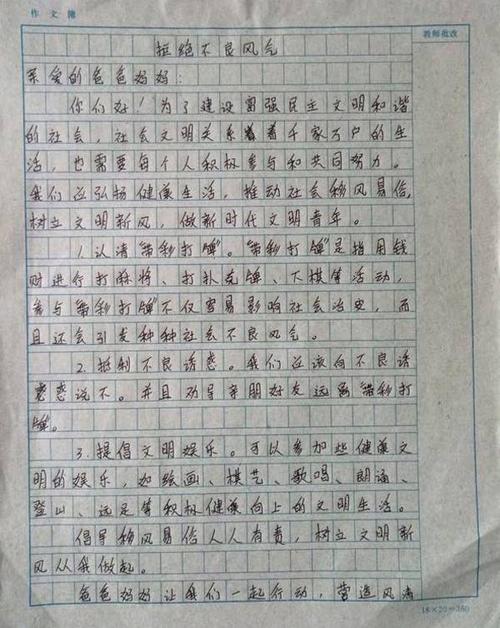 作文簿
教师批改
拒绝不良风气
亲爱的爸爸妈妈：
你们好！为了建设富强民主文明和谐
的社会，社会文明关系着千家万户的生
活，也需要每个人积极参与和共同努力。
我们应弘扬健康生活，推动社会移风易俗，
树立文明新风，做新时代文明青年。
1.认清"带彩打牌"。"带彩打牌"是指用钱
财进行打麻将、打扑克牌、下棋等活动，
参与"带彩打牌"不仅容易影响社会治安，而
且还会引发种种社会不良风气。
2.抵制不良诱惑。我们应该向不良诱
惑说不。并且劝导亲朋好友远离"带彩打
牌"。
3.提倡文明娱乐。可以参加些健康文
明的娱乐，如绘画、棋艺、歌唱、朗诵、
登山、远足等积极健康向上的文明生活。
倡导移风易俗人人有责，树立文明新
风从我做起。
爸爸妈妈让我们一起行动，营造风清
18×20=360